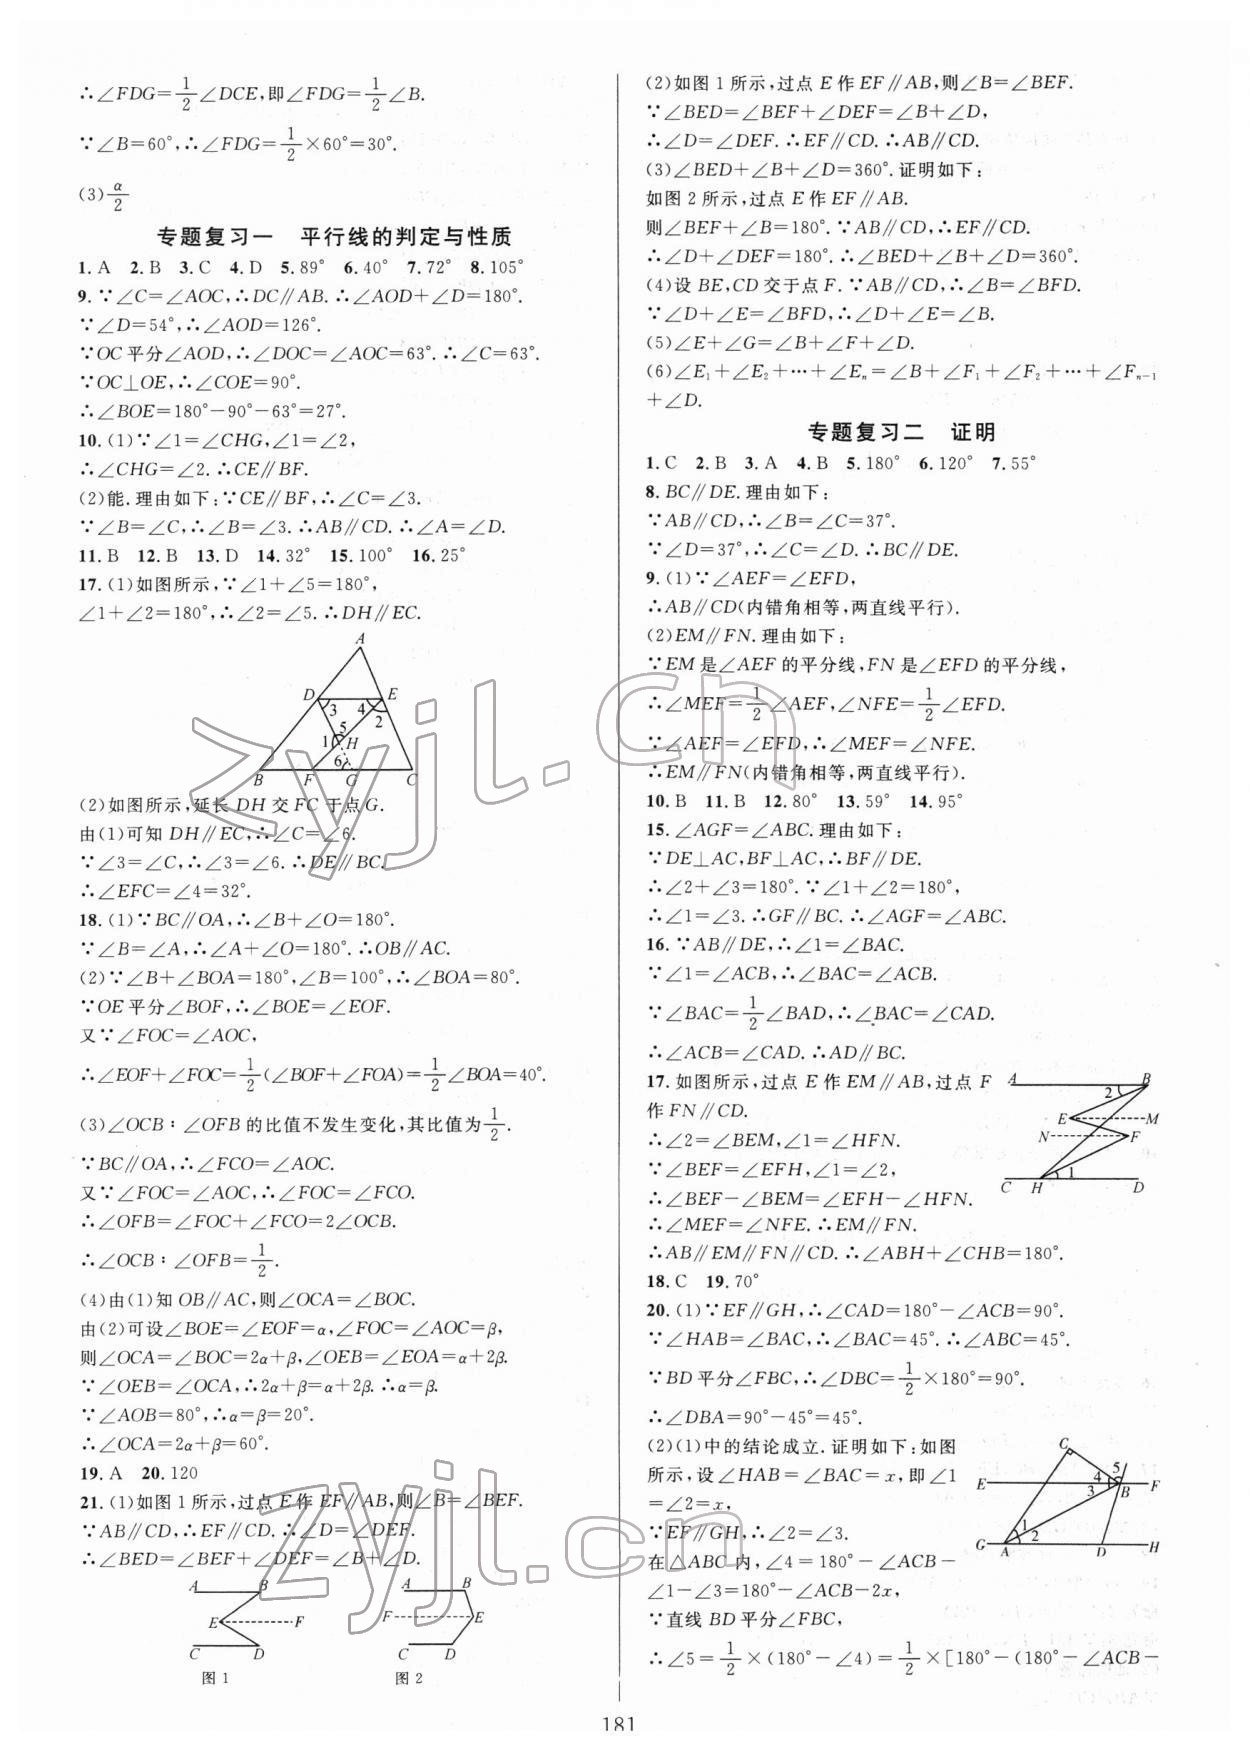 ∴∠FDG=1/2∠DCE,即∠FDG=1/2∠B.
∵∠B=60°,∴∠FDG=1/2×60°=30°.
(3)α/2
专题复习一　平行线的判定与性质
1.A 2.B 3.C 4.D 5.89° 6.40° 7.72° 8.105°
9.∵∠C=∠AOC,∴DC∥AB.∴∠AOD+∠D=180°.
∵∠D=54°,∴∠AOD=126°.
∵OC平分∠AOD,∴∠DOC=∠AOC=63°.∴∠C=63°.
∵OC⊥OE,∴∠COE=90°.
∴∠BOE=180°-90°-63°=27°.
10.(1)∵∠1=∠CHG,∠1=∠2,
∴∠CHG=∠2.∴CE∥BF.
(2)能.理由如下:∵CE∥BF,∴∠C=∠3.
∵∠B=∠C,∴∠B=∠3.∴AB∥CD.∴∠A=∠D.
11.B 12.B 13.D 14.32° 15.100° 16.25°
17.(1)如图所示,∵∠1+∠5=180°,
∠1+∠2=180°,∴∠2=∠5.∴DH∥EC.
A
D E
3 4 2
5
1 H
6
B F G C
(2)如图所示,延长DH交FC于点G.
由(1)可知DH∥EC,∴∠C=∠6.
∵∠3=∠C,∴∠3=∠6.∴DE∥BC.
∴∠EFC=∠4=32°.
18.(1)∵BC∥OA,∴∠B+∠O=180°.
∵∠B=∠A,∴∠A+∠O=180°.∴OB∥AC.
(2)∵∠B+∠BOA=180°,∠B=100°,∴∠BOA=80°.
∵OE平分∠BOF,∴∠BOE=∠EOF.
又∵∠FOC=∠AOC,
∴∠EOF+∠FOC=1/2(∠BOF+∠FOA)=1/2∠BOA=40°.
(3)∠OCB∶∠OFB的比值不发生变化,其比值为1/2.
∵BC∥OA,∴∠FCO=∠AOC.
又∵∠FOC=∠AOC,∴∠FOC=∠FCO.
∴∠OFB=∠FOC+∠FCO=2∠OCB.
∴∠OCB∶∠OFB=1/2.
(4)由(1)知OB∥AC,则∠OCA=∠BOC.
由(2)可设∠BOE=∠EOF=α,∠FOC=∠AOC=β,
则∠OCA=∠BOC=2α+β,∠OEB=∠EOA=α+2β.
∵∠OEB=∠OCA,∴2α+β=α+2β.∴α=β.
∵∠AOB=80°,∴α=β=20°.
∴∠OCA=2α+β=60°.
19.A 20.120
21.(1)如图1所示,过点E作EF∥AB,则∠B=∠BEF.
∵AB∥CD,∴EF∥CD.∴∠D=∠DEF.
∴∠BED=∠BEF+∠DEF=∠B+∠D.
A B A B
E F F E
C D C D
图1 图2
(2)如图1所示,过点E作EF∥AB,则∠B=∠BEF.
∵∠BED=∠BEF+∠DEF=∠B+∠D,
∴∠D=∠DEF.∴EF∥CD.∴AB∥CD.
(3)∠BED+∠B+∠D=360°.证明如下:
如图2所示,过点E作EF∥AB.
则∠BEF+∠B=180°.∵AB∥CD,∴EF∥CD.
∴∠D+∠DEF=180°.∴∠BED+∠B+∠D=360°.
(4)设BE,CD交于点F.∵AB∥CD,∴∠B=∠BFD.
∵∠D+∠E=∠BFD,∴∠D+∠E=∠B.
(5)∠E+∠G=∠B+∠F+∠D.
(6)∠E₁+∠E₂+⋯+∠Eₙ=∠B+∠F₁+∠F₂+⋯+∠Fₙ₋₁
+∠D.
专题复习二　证明
1.C 2.B 3.A 4.B 5.180° 6.120° 7.55°
8.BC∥DE.理由如下:
∵AB∥CD,∴∠B=∠C=37°.
∵∠D=37°,∴∠C=∠D.∴BC∥DE.
9.(1)∵∠AEF=∠EFD,
∴AB∥CD(内错角相等,两直线平行).
(2)EM∥FN.理由如下:
∵EM是∠AEF的平分线,FN是∠EFD的平分线,
∴∠MEF=1/2∠AEF,∠NFE=1/2∠EFD.
∵∠AEF=∠EFD,∴∠MEF=∠NFE.
∴EM∥FN(内错角相等,两直线平行).
10.B 11.B 12.80° 13.59° 14.95°
15.∠AGF=∠ABC.理由如下:
∵DE⊥AC,BF⊥AC,∴BF∥DE.
∴∠2+∠3=180°.∵∠1+∠2=180°,
∴∠1=∠3.∴GF∥BC.∴∠AGF=∠ABC.
16.∵AB∥DE,∴∠1=∠BAC.
∵∠1=∠ACB,∴∠BAC=∠ACB.
∵∠BAC=1/2∠BAD,∴∠BAC=∠CAD.
∴∠ACB=∠CAD.∴AD∥BC.
17.如图所示,过点E作EM∥AB,过点F
作FN∥CD.
∴∠2=∠BEM,∠1=∠HFN.
∵∠BEF=∠EFH,∠1=∠2,
∴∠BEF-∠BEM=∠EFH-∠HFN.
∴∠MEF=∠NFE.∴EM∥FN.
∴AB∥EM∥FN∥CD.∴∠ABH+∠CHB=180°.
A B
2
E M
N F
1
C H D
18.C 19.70°
20.(1)∵EF∥GH,∴∠CAD=180°-∠ACB=90°.
∵∠HAB=∠BAC,∴∠BAC=45°.∴∠ABC=45°.
∵BD平分∠FBC,∴∠DBC=1/2×180°=90°.
∴∠DBA=90°-45°=45°.
(2)(1)中的结论成立.证明如下:如图
所示,设∠HAB=∠BAC=x,即∠1
=∠2=x,
∵EF∥GH,∴∠2=∠3.
在△ABC内,∠4=180°-∠ACB-
∠1-∠3=180°-∠ACB-2x,
∵直线BD平分∠FBC,
∴∠5=1/2×(180°-∠4)=1/2×[180°-(180°-∠ACB-
C
5
E 4 F
3 B
1
2
G A D H
181
zyjl.cn
zyjl.cn